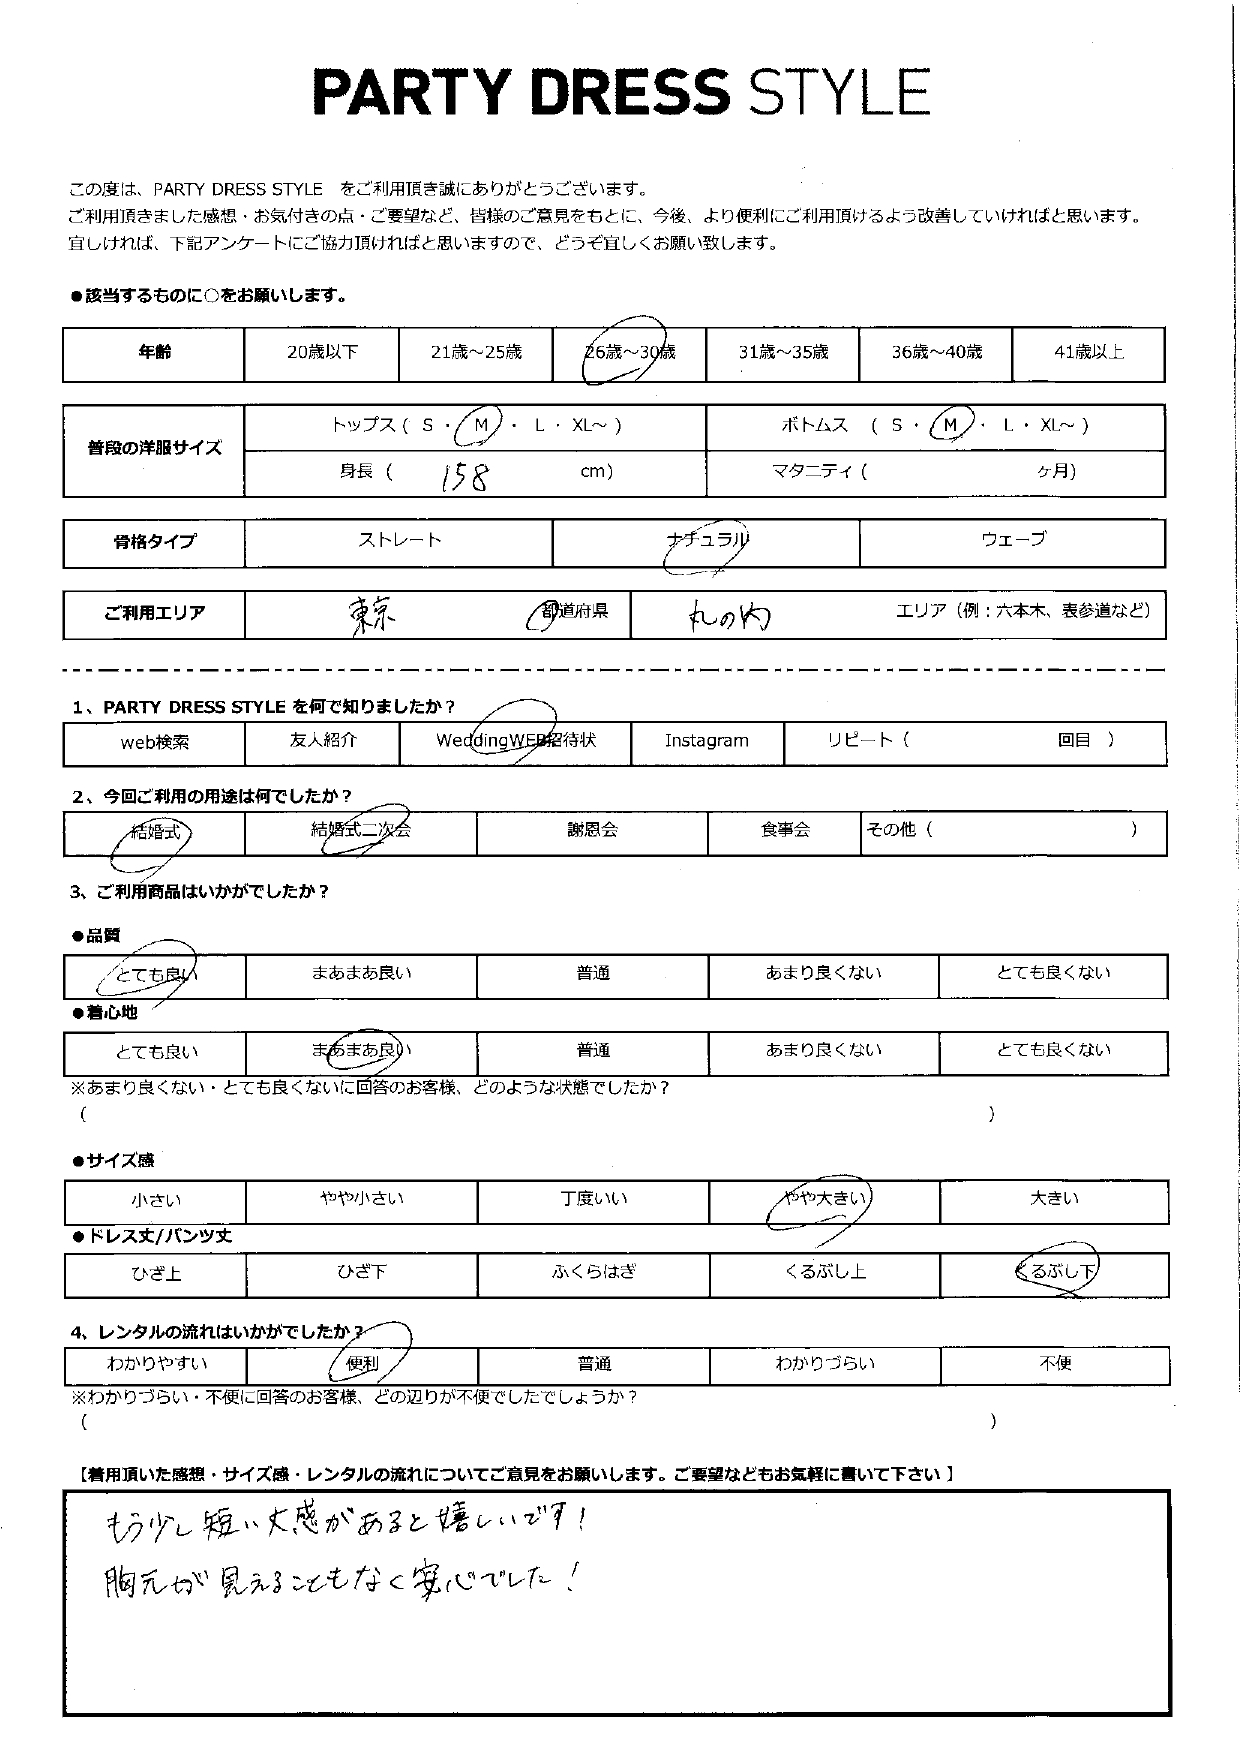 PARTY DRESS STYLE
この度は、PARTY DRESS STYLE　をご利用頂き誠にありがとうございます。
ご利用頂きました感想・お気付きの点・ご要望など、皆様のご意見をもとに、今後、より便利にご利用頂けるよう改善していければと思います。
宜しければ、下記アンケートにご協力頂ければと思いますので、どうぞ宜しくお願い致します。
●該当するものに○をお願いします。
年齢 20歳以下 21歳～25歳 26歳～30歳 31歳～35歳 36歳～40歳 41歳以上
普段の洋服サイズ トップス（ S ・ M ・ L ・ XL～ ） ボトムス （ S ・ M ・ L ・ XL～ ）
身長（ 158 cm） マタニティ（ ヶ月）
骨格タイプ ストレート ナチュラル ウェーブ
ご利用エリア 東京 都道府県 丸の内 エリア（例：六本木、表参道など）
1、PARTY DRESS STYLE を何で知りましたか？
web検索 友人紹介 WeddingWEB招待状 Instagram リピート（ 回目 ）
2、今回ご利用の用途は何でしたか？
結婚式 結婚式二次会 謝恩会 食事会 その他（ ）
3、ご利用商品はいかがでしたか？
●品質
とても良い まあまあ良い 普通 あまり良くない とても良くない
●着心地
とても良い まあまあ良い 普通 あまり良くない とても良くない
※あまり良くない・とても良くないに回答のお客様、どのような状態でしたか？
（ ）
●サイズ感
小さい やや小さい 丁度いい やや大きい 大きい
●ドレス丈/パンツ丈
ひざ上 ひざ下 ふくらはぎ くるぶし上 くるぶし下
4、レンタルの流れはいかがでしたか？
わかりやすい 便利 普通 わかりづらい 不便
※わかりづらい・不便に回答のお客様、どの辺りが不便でしたでしょうか？
（ ）
【着用頂いた感想・サイズ感・レンタルの流れについてご意見をお願いします。ご要望などもお気軽に書いて下さい 】
もう少し短い丈感があると嬉しいです！
胸元が見えることもなく安心でした！